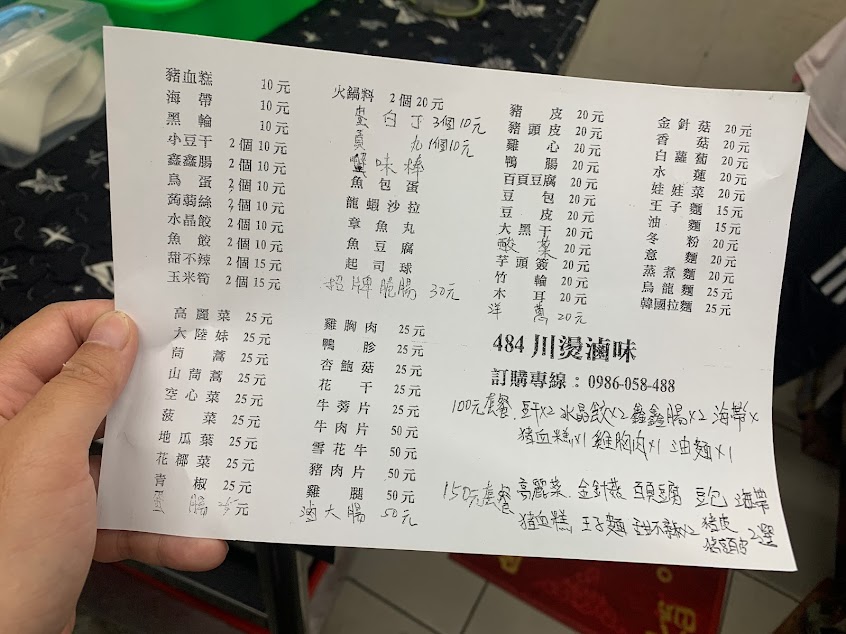 豬血糕 10元
海帶 10元
黑輪 10元
小豆干 2個10元
鑫鑫腸 2個10元
鳥蛋 2個10元
蒟蒻絲 2個10元
水晶餃 2個10元
魚餃 2個10元
甜不辣 2個15元
玉米筍 2個15元
火鍋料 2個20元
蛋白丁 3個10元
貢丸 1個10元
蟹味棒
魚包蛋
龍蝦沙拉
章魚丸
魚豆腐
起司球
招牌脆腸 30元
豬皮 20元
豬頭皮 20元
雞心 20元
鴨腸 20元
百頁豆腐 20元
豆包 20元
豆皮 20元
大黑干 20元
酸菜 20元
芋頭簽 20元
竹輪 20元
木耳 20元
洋蔥 20元
金針菇 20元
香菇 20元
白蘿蔔 20元
水蓮 20元
娃娃菜 20元
王子麵 15元
油麵 15元
冬粉 20元
意麵 20元
蒸煮麵 20元
烏龍麵 25元
韓國拉麵 25元
高麗菜 25元
大陸妹 25元
茼蒿 25元
山茼蒿 25元
空心菜 25元
菠菜 25元
地瓜葉 25元
花椰菜 25元
青椒 25元
腸 元
雞胸肉 25元
鴨胗 25元
杏鮑菇 25元
花干 25元
牛蒡片 25元
牛肉片 50元
雪花牛 50元
豬肉片 50元
雞腿 50元
滷大腸 50元
484 川燙滷味
訂購專線：0986-058-488
100元套餐.豆干x2 水晶餃x2 鑫鑫腸x2 海帶x
豬血糕x1 雞胸肉x1 油麵x1
150元套餐 高麗菜.金針菇 百頁豆腐 豆包 海帶
豬血糕 王子麵 甜不辣x2 豬皮
豬頭皮 2選